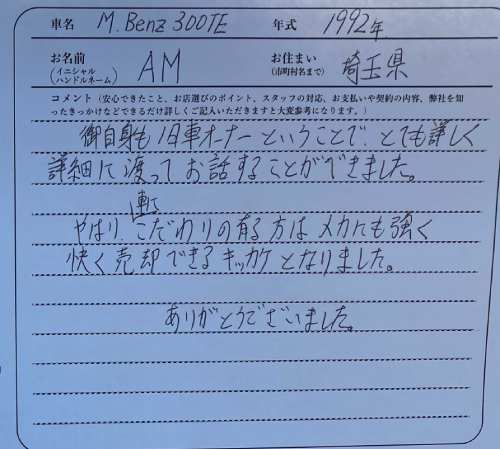 車名 M.Benz 300TE 年式 1992年
お名前 (イニシャル ハンドルネーム) AM お住まい (市町村名まで) 埼玉県
コメント(安心できたこと、お店選びのポイント、スタッフの対応、お支払いや契約の内容、弊社を知
ったきっかけなどできるだけ詳しくご記入いただきますと大変参考になります。)
御自身も旧車オーナーということで、とても詳しく
詳細に渡ってお話することができました。
車に
やはり、こだわりの有る方はメカにも強く
快く売却できるキッカケとなりました。
ありがとうございました。